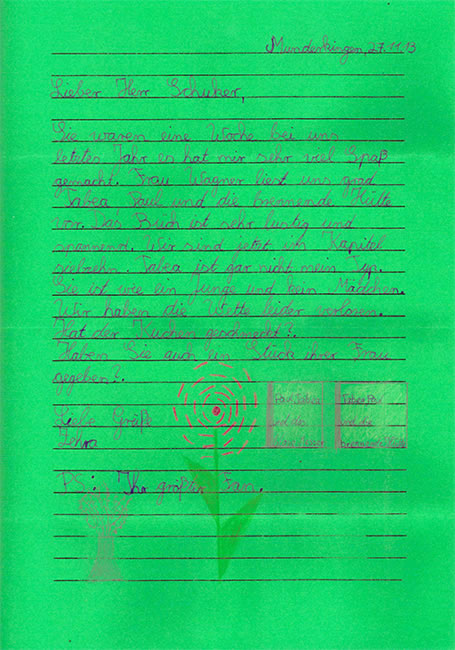 Munderkingen, 27.11.13
Lieber Herr Schuker,
Sie waren eine Woche bei uns
letztes Jahr es hat mir sehr viel Spaß
gemacht. Frau Wagner liest uns grad
Tabea Paul und die brennende Hütte
vor. Das Buch ist sehr lustig und
spannend. Wir sind jetzt im Kapitel
siebzehn. Tabea ist gar nicht mein Typ.
Sie ist wie ein Junge und kein Mädchen.
Wir haben die Wette leider verloren.
Hat der Kuchen geschmeckt?.
Haben Sie auch ein Stück ihrer Frau
gegeben?.
Liebe Grüße
Zehra
PS: Ihr größter Fan.